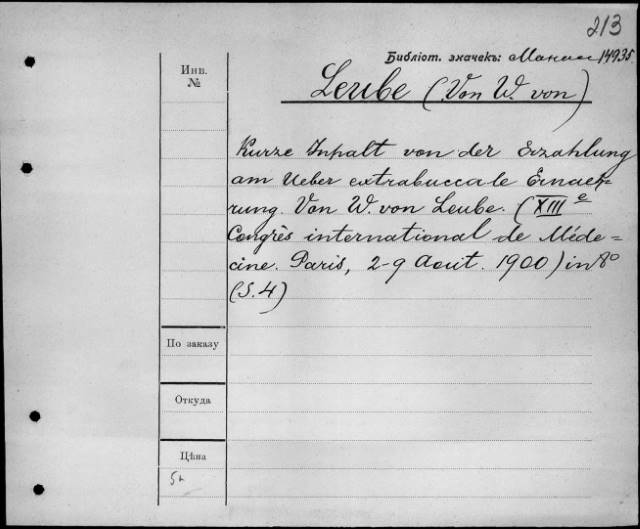 213
Библіот. значекъ: 14935
Инв.
№
Leube (Von W. von)
Kurze Inhalt von der Erzahlung
am Ueber extrabuccale Ernaeh-
rung. Von W. von Leube. (XIII e
Congrès international de Méde=
cine. Paris, 2-9 Aout. 1900) in 8º
(S. 4)
По заказу
Откуда
Цѣна